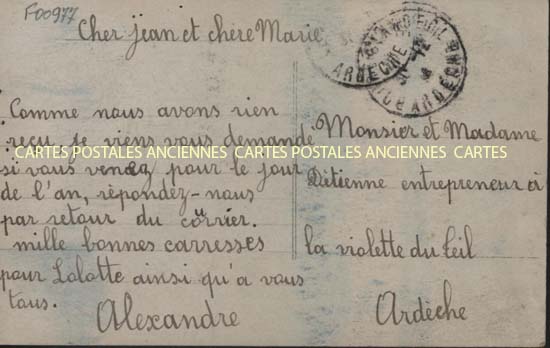 F00977
Cher Jean et chère Marie
Comme nous avons rien
reçu, je viens vous demande
si vous venez pour le jour
de l'an, répondez-nous
par retour du courrier.
mille bonnes carresses
pour Lalotte ainsi qu'a vous
tous.
Alexandre
Monsier et Madame
Détienne entrepreneur à
la violette du teil
Ardèche
CARTES POSTALES ANCIENNES CARTES POSTALES ANCIENNES CARTES
ARDECHE
ARDECHE